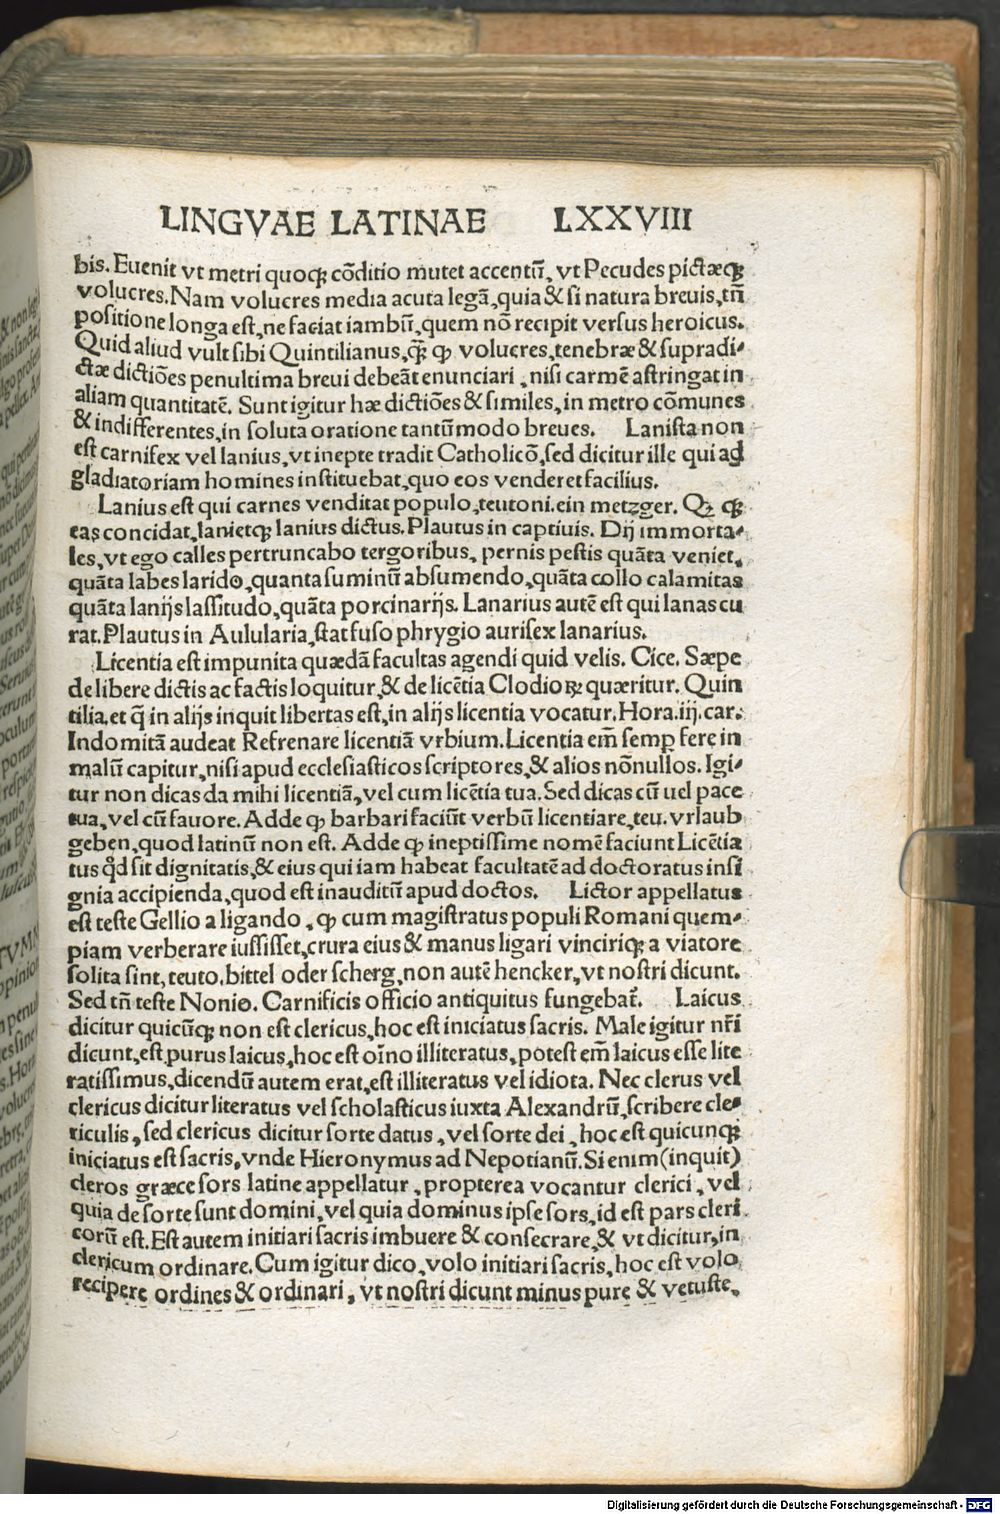 LINGVAE LATINAE LXXVIII
bis. Euenit vt metri quoqꝫ cōditio mutet accentū, vt Pecudes pictæqꝫ
volucres. Nam volucres media acuta legā, quia & si natura breuis, tn̄
positione longa est, ne faciat iambū, quem nō recipit versus heroicus.
Quid aliud vult sibi Quintilianus, qꝫ̄ ꝙ volucres, tenebræ & supradi⸗
ctæ dictiōes penultima breui debeāt enunciari, nisi carmē astringat in
aliam quantitatē. Sunt igitur hæ dictiōes & similes, in metro cōmunes
& indifferentes, in soluta oratione tantūmodo breues. Lanista non
est carnifex vel lanius, vt inepte tradit Catholicō, sed dicitur ille qui ad
gladiatoriam homines instituebat, quo eos venderet facilius.
Lanius est qui carnes venditat populo, teutoni. ein metzger. Qꝫ qꝫ
eas concidat, lanietqꝫ lanius dictus. Plautus in captiuis. Dij immorta⸗
les, vt ego calles pertruncabo tergoribus, pernis pestis quāta veniet,
quāta labes larido, quanta suminū absumendo, quāta collo calamitas
quāta lanijs lassitudo, quāta porcinarijs. Lanarius autē est qui lanas cu
rat. Plautus in Aulularia, stat fuso phrygio aurifex lanarius.
Licentia est impunita quædā facultas agendi quid velis. Cice. Sæpe
de libere dictis ac factis loquitur, & de licētia Clodioꝝ quæritur. Quin
tilia. et q̄ in alijs inquit libertas est, in alijs licentia vocatur. Hora. iij. car.
Indomitā audeat Refrenare licentiā vrbium. Licentia em̄ semꝑ fere in
malū capitur, nisi apud ecclesiasticos scriptores, & alios nōnullos. Igi⸗
tur non dicas da mihi licentiā, vel cum licētia tua. Sed dicas cū uel pace
tua, vel cū fauore. Adde ꝙ barbari faciūt verbū licentiare, teu. vrlaub
geben, quod latinū non est. Adde ꝙ ineptissime nomē faciunt Licētia
tus qd̄ sit dignitatis, & eius qui iam habeat facultatē ad doctoratus insi
gnia accipienda, quod est inauditū apud doctos. Lictor appellatus
est teste Gellio a ligando, ꝙ cum magistratus populi Romani quem⸗
piam verberare iussisset, crura eius & manus ligari vinciriqꝫ a viatore
solita sint, teuto. bittel oder scherg, non autē hencker, vt nostri dicunt.
Sed tn̄ teste Nonio. Carnificis officio antiquitus fungebat᷑. Laicus
dicitur quicūqꝫ non est clericus, hoc est iniciatus sacris. Male igitur nr̄i
dicunt, est purus laicus, hoc est oīno illiteratus, potest em̄ laicus esse lite
ratissimus, dicendū autem erat, est illiteratus vel idiota. Nec clerus vel
clericus dicitur literatus vel scholasticus iuxta Alexandrū, scribere cle⸗
riculis, sed clericus dicitur sorte datus, vel sorte dei, hoc est quicunqꝫ
iniciatus est sacris, vnde Hieronymus ad Nepotianū. Si enim (inquit)
cleros græce sors latine appellatur, propterea vocantur clerici, vel
quia de sorte sunt domini, vel quia dominus ipse sors, id est pars cleri
corū est. Est autem initiari sacris imbuere & consecrare, & vt dicitur, in
clericum ordinare. Cum igitur dico, volo initiari sacris, hoc est volo
recipere ordines & ordinari, vt nostri dicunt minus pure & vetuste,
Digitalisierung gefördert durch die Deutsche Forschungsgemeinschaft - DFG